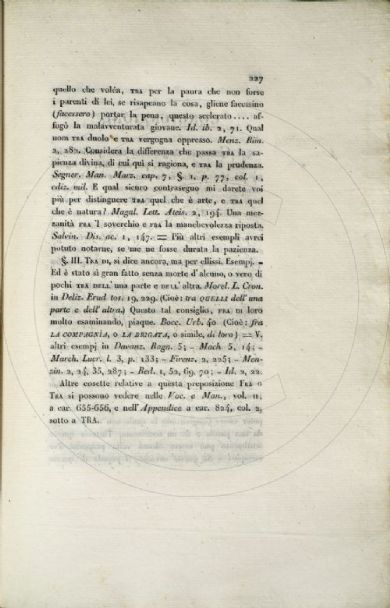 227
quello che voléa, TRA per la paura che non forse
i parenti di lei, se risapeano la cosa, gliene facessino
(facessero) portar la pena, questo scelerato .... af-
fogò la malavventurata giovane. Id. ib. 2, 71. Qual
uom TRA duolo e TRA vergogna oppresso. Menz. Rim.
2, 282. Considera la differenza che passa TRA la sa-
pienza divina, di cui qui si ragiona, e TRA la prudenza.
Segner. Man. Marz. cap. 7, §. 1, p. 77, col. 1,
ediz. mil. E qual sienco contraseguo mi darete voi
più per distinguere TRA quel che è arte, e TRA quel
che è natura? Magal. Lett. Ateis. 2, 194. Una mez-
zanità FRA 'l soverchio e FRA la manchevolezza riposta.
Salvin. Dis. ac. 1, 147. = Più altri esempj avrei
potuto notarne, se me ne fosse durata la pazienza.
§. III. TRA DI, si dice ancora, ma per ellissi. Esempj. -
Ed è stato sì gran fatto senza morte d'alcuno, o vero di
pochi TRA DELL'una parte e DELL'altra. Morel. L. Cron.
in Deliz. Erud. tos. 19, 229. (Cioè: tra QUELLI dell'una
parte e dell'altra.) Questo tal consiglio, FRA DI loro
molto esaminando, piaque. Bocc. Urb. 40 (Cioè: fra
LA COMPAGNIA, o LA BRIGATA, o simile, di loro) = V.
altri esempj in Davanz. Bagn. 5; - Mach. 5, 14; -
March. Lucr. l. 3, p. 133; - Firenz. 2, 225; - Men-
zin. 2, 24, 35, 287; - Berl. 1, 52, 69, 70; - Id. 2, 22.
Altre cosette relative a questa preposizione FRA o
TRA si possono vedere nelle Voc. e Man., vol. II,
a car. 655-656, e nell'Appendice a car. 824, col. 2,
sotto a TRA.